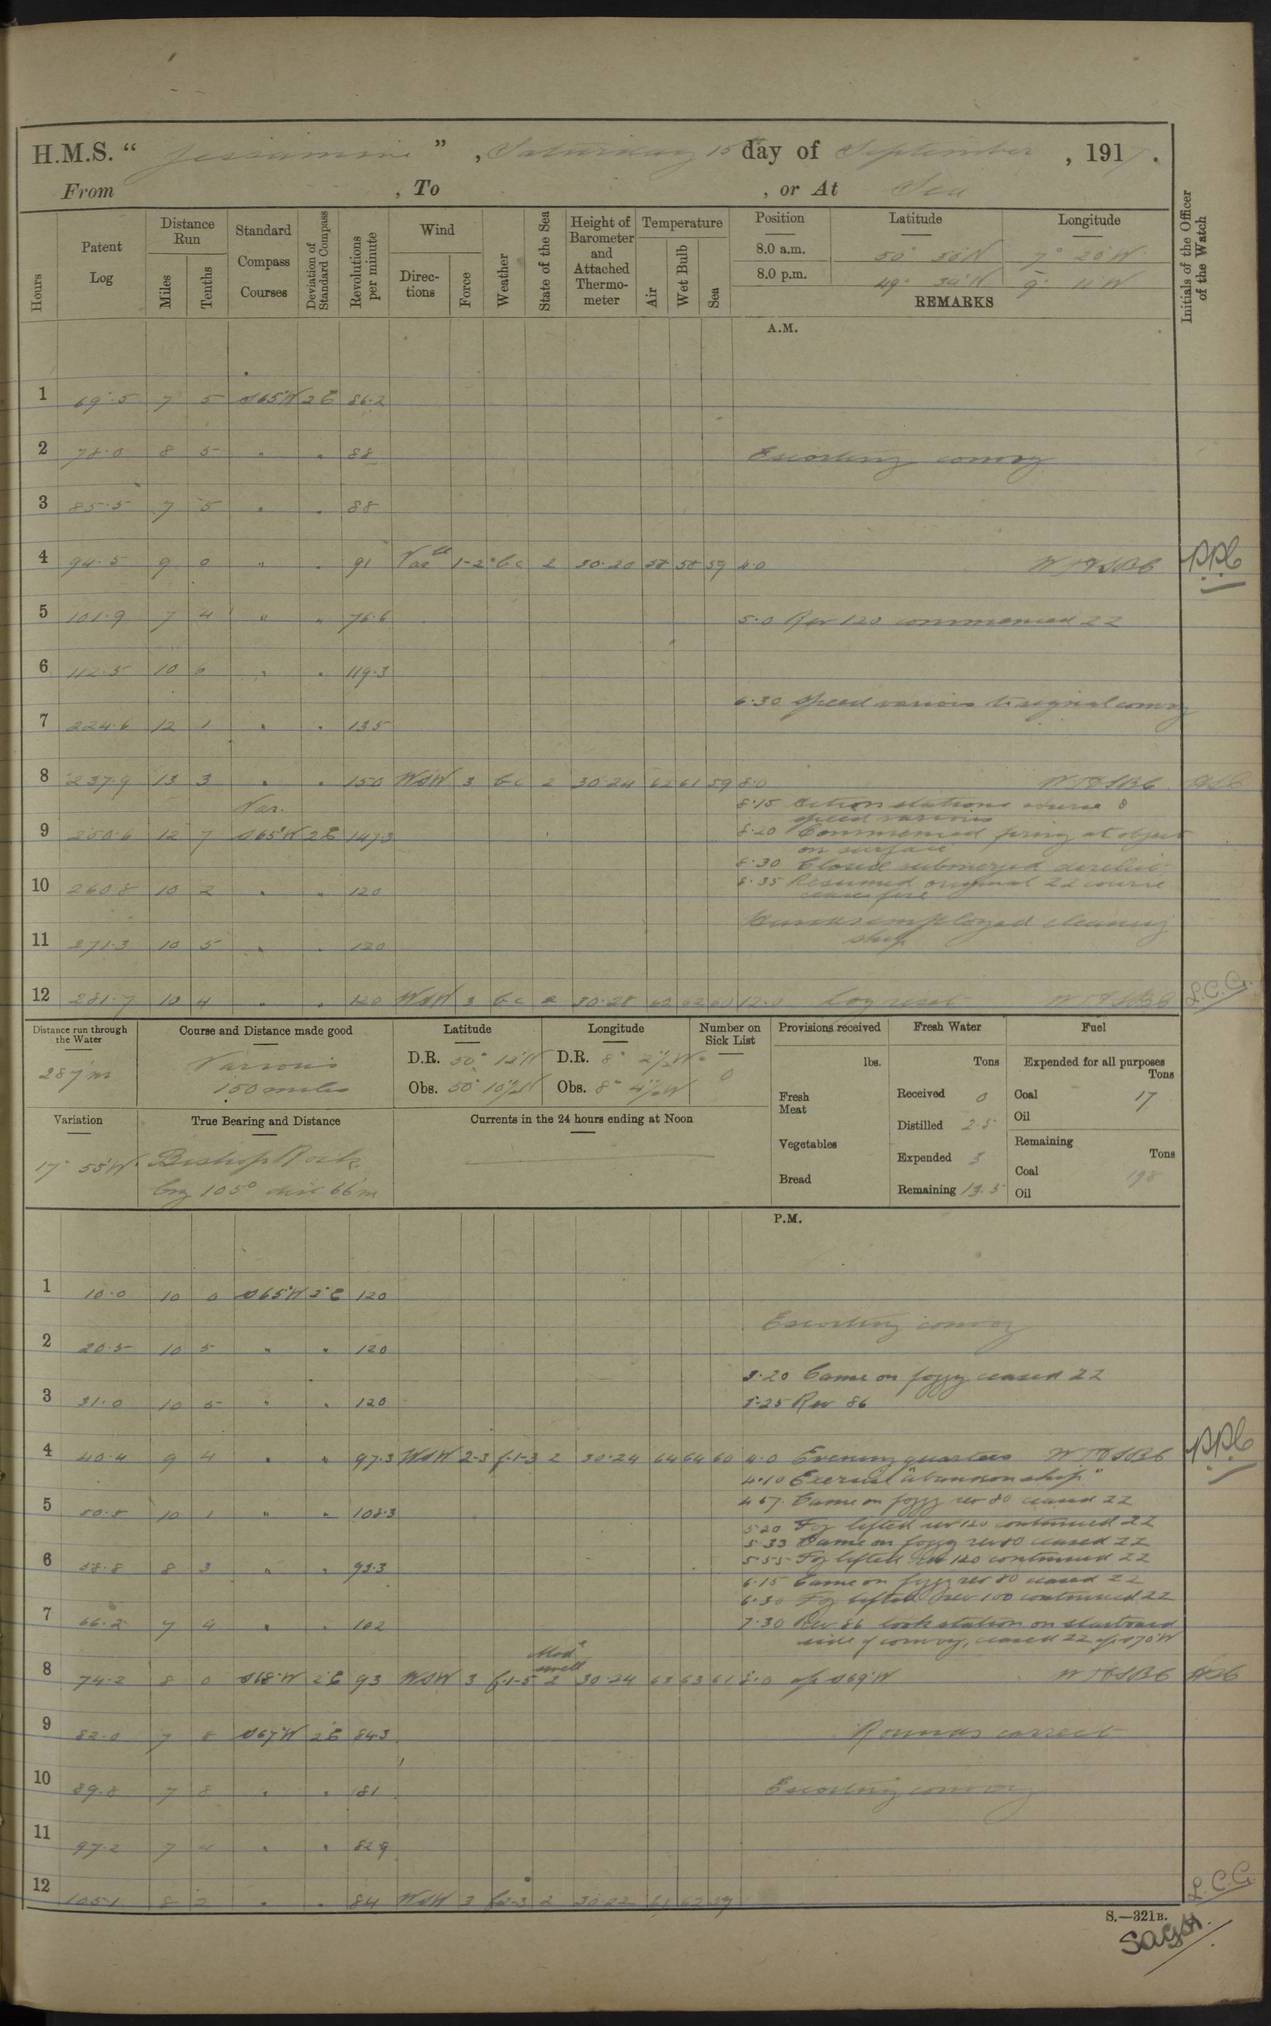 H.M.S. " Jessamine " , Saturday 15th day of September , 1917.
From , To , or At Sea
Hours
Patent Log
Distance Run
Miles
Tenths
Standard Compass Courses
Deviation of Standard Compass
Revolutions per minute
Wind
Directions
Force
Weather
State of the Sea
Height of Barometer and Attached Thermometer
Temperature
Air
Wet Bulb
Sea
Position Latitude Longitude
8.0 a.m. 50° 50'N 7° 20'W
8.0 p.m. 49° 50'N 9° 11'W
REMARKS
Initials of the Officer of the Watch
A.M.
1 69.5 7 5 S65°W 2°E 86.2
2 78.0 8 5 " " 88 Escorting convoy
3 85.5 7 5 " " 88
4 94.5 9 0 " " 91 Var 1-2 bc 2 30.20 58 58 59 4.0
5 101.9 7 4 " " 76.6 5.0 Rev 120 commenced ZZ
6 112.5 10 6 " " 119.3
6.30 Speed various to signal convoy
7 224.6 12 1 " " 135
8 237.9 13 3 " " 150 WSW 3 bc 2 30.24 62 61 59 8.0
8.15 Action stations course &
speed various
9 250.6 12 7 Var. S65°W 2°E 147.3 8.20 Commenced firing at object
on surface
8.30 Closed submerged derelict
10 260.8 10 2 " " 120 8.35 Resumed original ZZ course
cease fire
Hands employed cleaning
ship
11 271.3 10 5 " " 120
12 281.7 10 4 " " 120 WSW 3 bc 2 30.28 62 62 12.0 Log reset L.C.G.
Distance run through the Water
287 m
Course and Distance made good
Various
150 miles
Latitude
D.R. 50° 12'N
Obs. 50° 10½'N
Longitude
D.R. 8° 2½'W
Obs. 8° 4½'W
Number on Sick List
0
Provisions received
lbs.
Fresh Meat
Vegetables
Bread
Fresh Water
Tons
Received 0
Distilled 2.5
Expended 3
Remaining 19.5
Fuel
Expended for all purposes
Tons
Coal 17
Oil
Remaining
Tons
Coal 198
Oil
Variation
17° 55'W.
True Bearing and Distance
Bishop Rock
brg 105° dist 66 m
Currents in the 24 hours ending at Noon
P.M.
1 10.0 10 0 S65°W 2°E 120
Escorting convoy
2 20.5 10 5 " " 120
3.20 Came on foggy ceased ZZ
3 31.0 10 5 " " 120 3.25 Rev 86
4 40.4 9 4 " " 97.3 WSW 2-3 f.1-3 2 30.24 64 64 60 4.0 Evening quarters
4.10 Exercised "abandon ship"
4.57 Came on foggy rev 80 ceased ZZ
5 50.5 10 1 " " 108.3
5.20 Fog lifted rev 120 continued ZZ
5.33 Came on foggy rev 80 ceased ZZ
6 58.8 8 3 " " 93.3 5.55 Fog lifted rev 120 continued ZZ
6.15 Came on foggy rev 80 ceased ZZ
6.30 Fog lifted rev 100 continued ZZ
7 66.2 7 4 " " 102 7.30 Rev 86 took station on starboard
side of convoy, ceased ZZ S70°W
Modte swell
8 74.2 8 0 S68°W 2°E 93 WSW 3 f.1-5 2 30.24 63 63 61 8.0 S69°W
9 82.0 7 8 S67°W 2°E 84.3 Rounds correct
10 89.8 7 8 " " 81 Escorting convoy
11 97.2 7 4 " " 82.9
12 105.1 8 2 " " 84 WSW 3 f.2-3 2 30.22 61 62 59 L.C.G.
S.—321B.